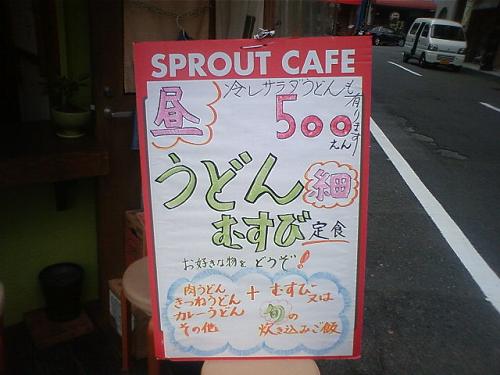 SPROUT CAFE
冷しサラダうどんも有ります
昼
500えん
うどん 細
むすび 定食
お好きな物をどうぞ!
肉うどん
きつねうどん
カレーうどん
その他
+
むすび又は
旬の
炊き込みご飯